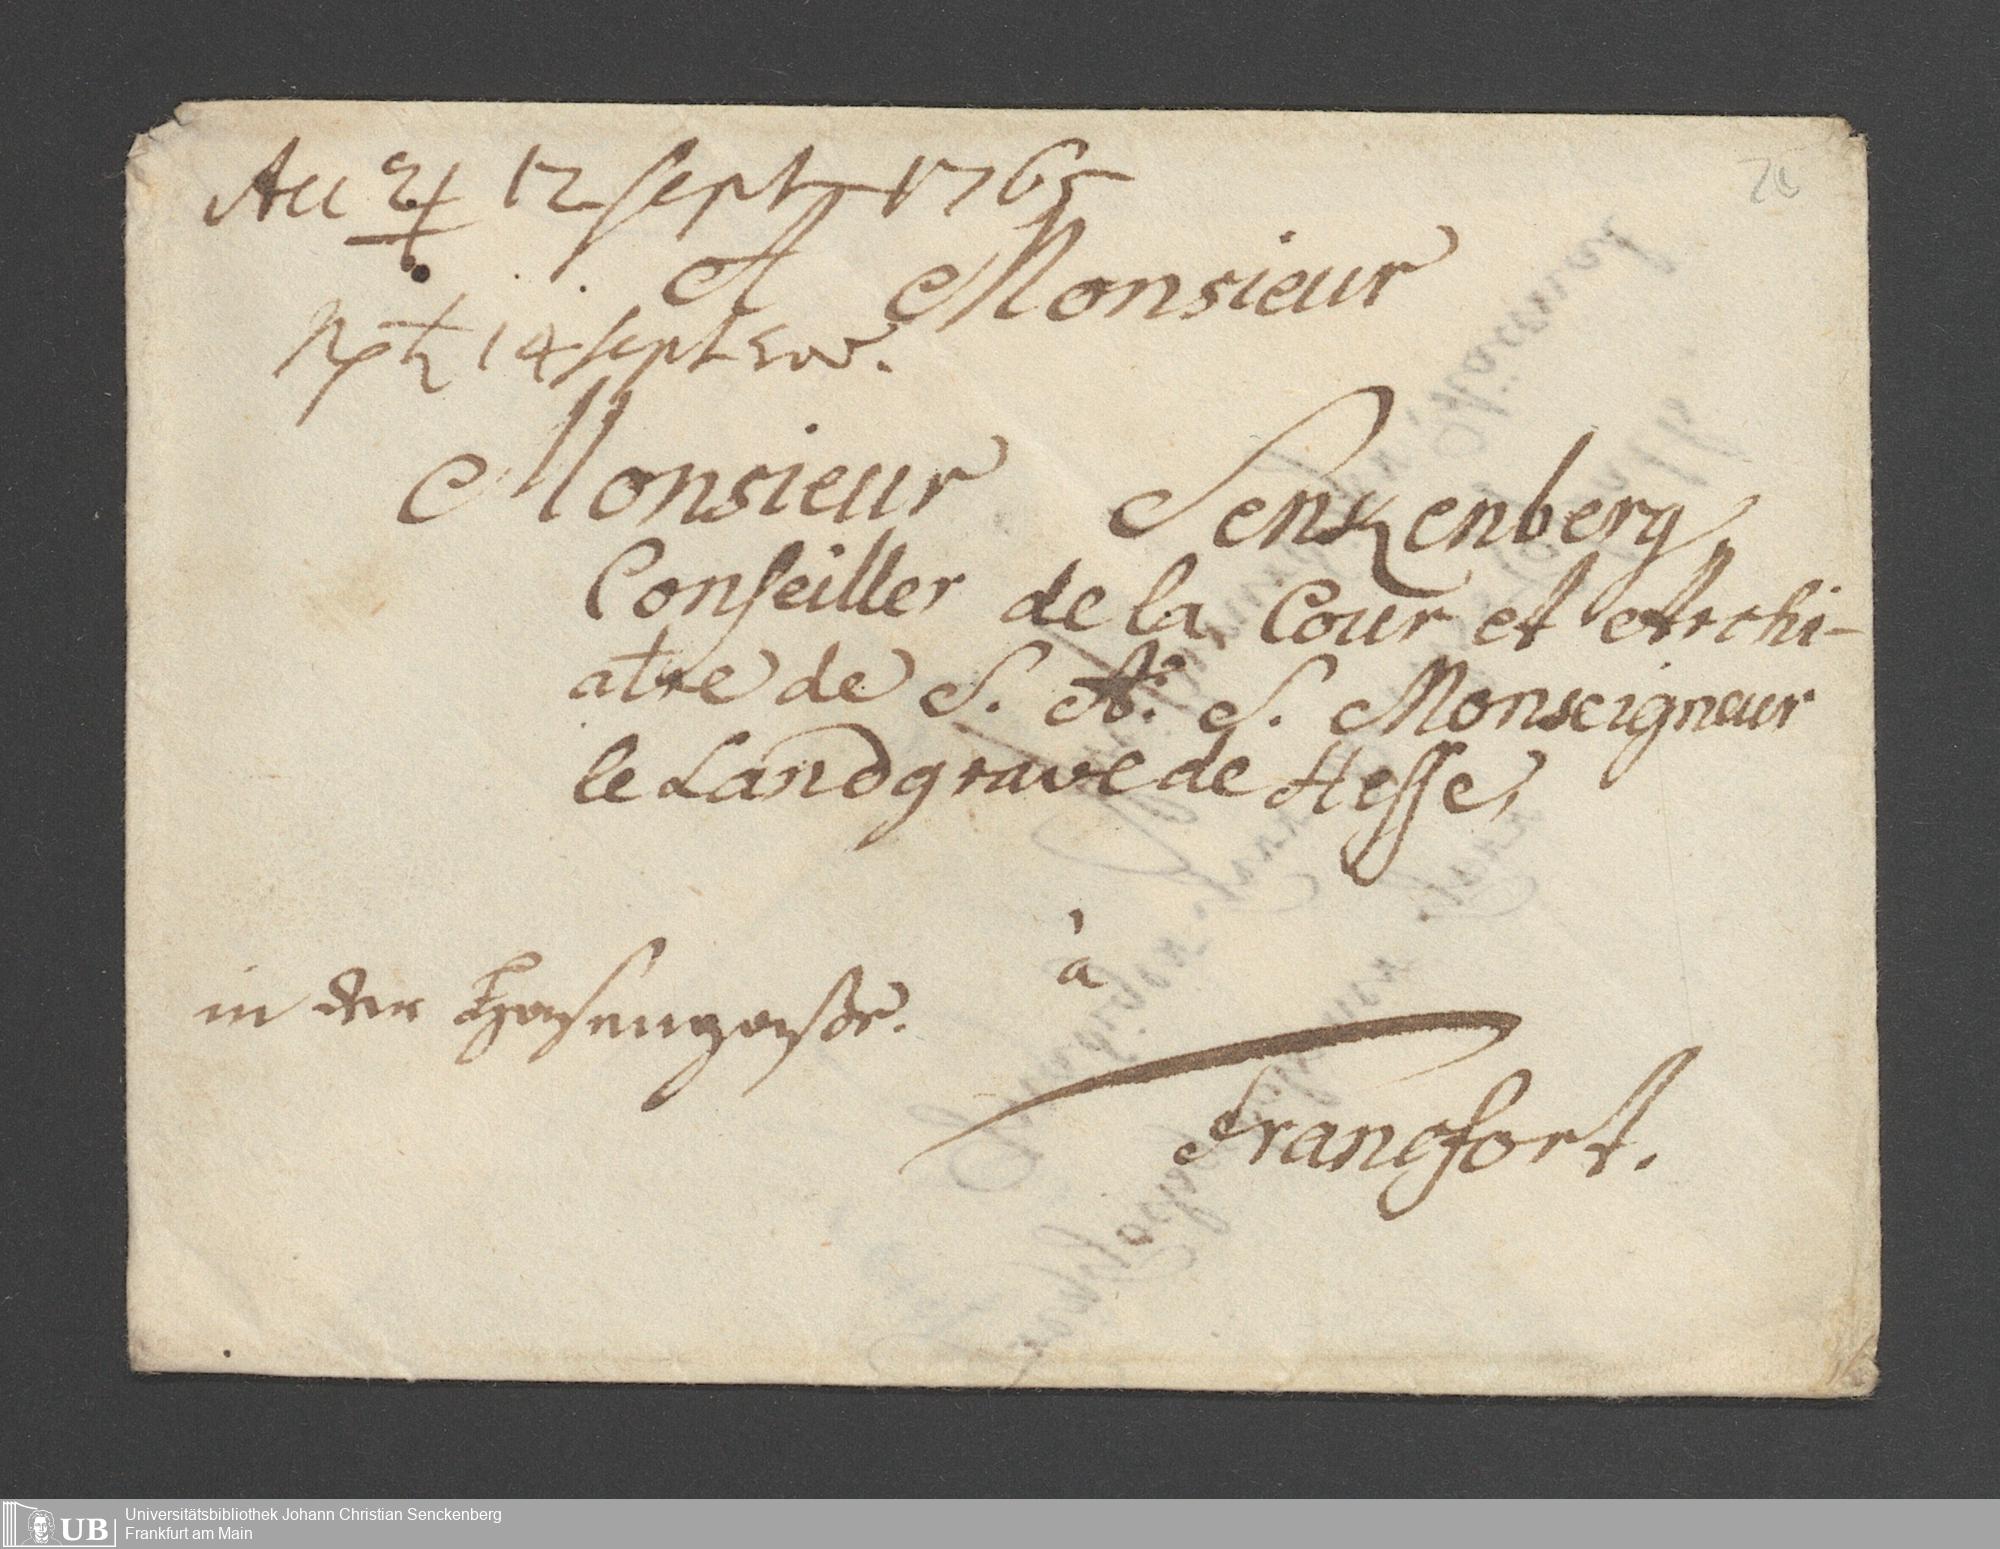 Acc ♃ 12 Sept 1765
A Monsieur
♄ 14 Sept
Monsieur Senkenberg,
Conseiller de la Cour et Archi-
atre de S. A. S. Monseigneur
le Landgrave de Hesse,
à
in der Hasengasse.
Francfort.
UB
Universitätsbibliothek Johann Christian Senckenberg
Frankfurt am Main